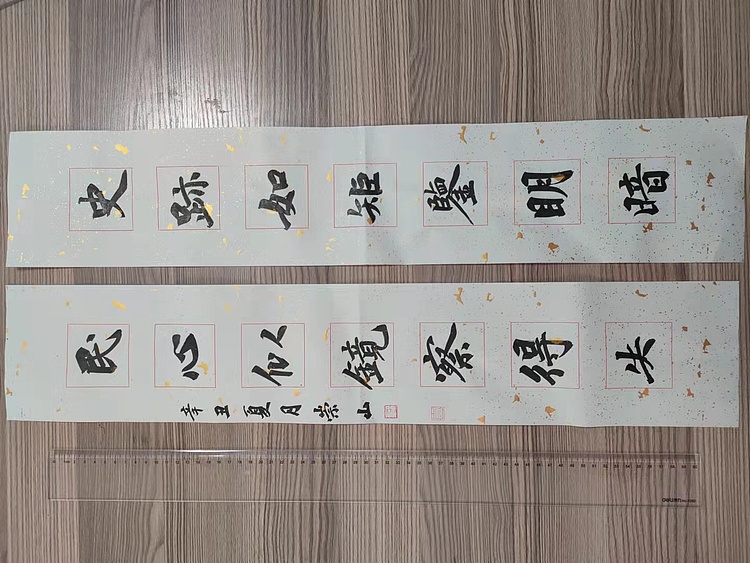 史跡如矩鑒明暗
民心似鏡察得失
辛丑夏月崇山